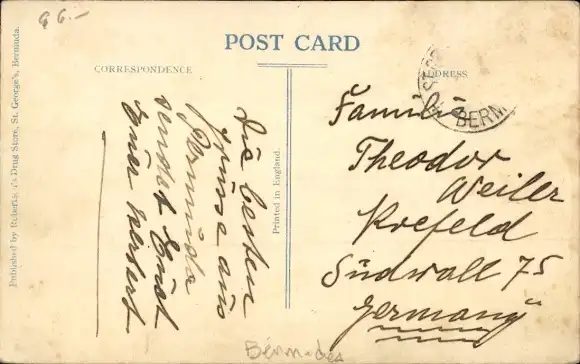 96.-
POST CARD
CORRESPONDENCE
ADDRESS
Die besten
Grüsse aus
Bermuda
sendet Euch
Euer Herbert
Familie
Theodor
Weiler
Krefeld
Südwall 75
Germany
BERM
Printed in England.
Published by Roberts 's Drug Store, St. George's, Bermuda.
Bermudes